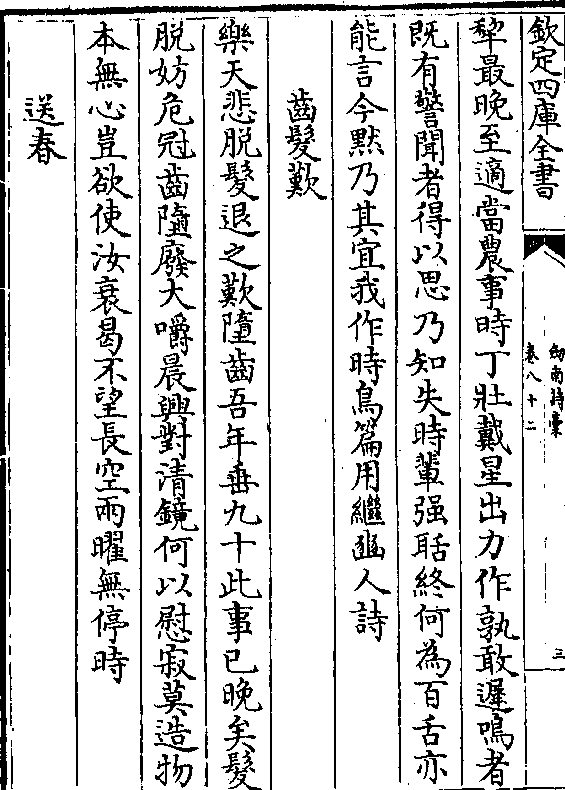 欽定四庫全書
劍南詩槀
卷八十二
三
犂最晚至適當農事時丁壯戴星出力作孰敢遲鳴者
既有警聞者得以思乃知失時輩强聒終何為百舌亦
能言今黙乃其宜我作時鳥篇用繼豳人詩
齒髮歎
樂天悲脱髮退之歎墮齒吾年垂九十此事已晩矣髮
脱妨危冠齒墮廢大嚼晨興對清鏡何以慰寂莫造物
本無心豈欲使汝衰曷不望長空兩曜無停時
送春